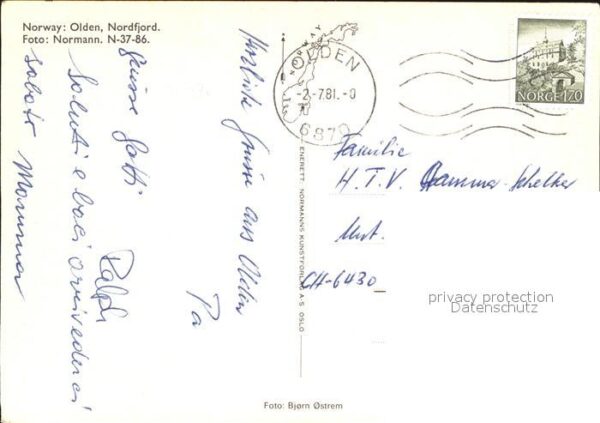 Norway: Olden, Nordfjord.
Foto: Normann. N-37-86.
Herzliche Grüsse aus Olden
Pa
Grüsse Gatti
Ralph
Saluti e baci arrivederci
sabato Mamma
NORWAY
OLDEN
-2.-7.81.-0
6870
NORGE 170
ENERETT NORMANNS KUNSTFORLAG A-S OSLO
Familie
H.T.V. Schelker
CH-6430
privacy protection
Datenschutz
Foto: Bjørn Østrem